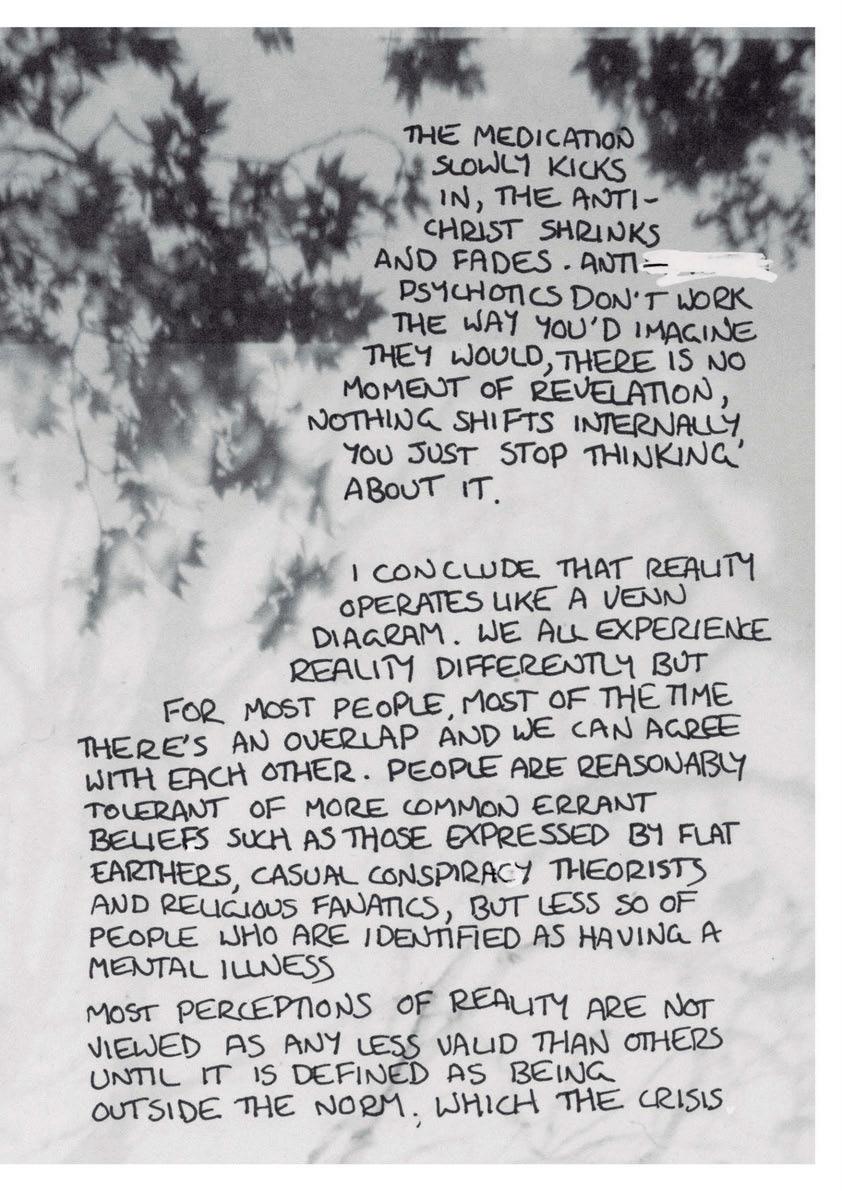 THE MEDICATION
SLOWLY KICKS
IN, THE ANTI-
CHRIST SHRINKS
AND FADES. ANTI-
PSYCHOTICS DON'T WORK
THE WAY YOU'D IMAGINE
THEY WOULD, THERE IS NO
MOMENT OF REVELATION,
NOTHING SHIFTS INTERNALLY,
YOU JUST STOP THINKING
ABOUT IT.
I CONCLUDE THAT REALITY
OPERATES LIKE A VENN
DIAGRAM. WE ALL EXPERIENCE
REALITY DIFFERENTLY BUT
FOR MOST PEOPLE, MOST OF THE TIME
THERE'S AN OVERLAP AND WE CAN AGREE
WITH EACH OTHER. PEOPLE ARE REASONABLY
TOLERANT OF MORE COMMON ERRANT
BELIEFS SUCH AS THOSE EXPRESSED BY FLAT
EARTHERS, CASUAL CONSPIRACY THEORISTS
AND RELIGIOUS FANATICS, BUT LESS SO OF
PEOPLE WHO ARE IDENTIFIED AS HAVING A
MENTAL ILLNESS
MOST PERCEPTIONS OF REALITY ARE NOT
VIEWED AS ANY LESS VALID THAN OTHERS
UNTIL IT IS DEFINED AS BEING
OUTSIDE THE NORM, WHICH THE CRISIS